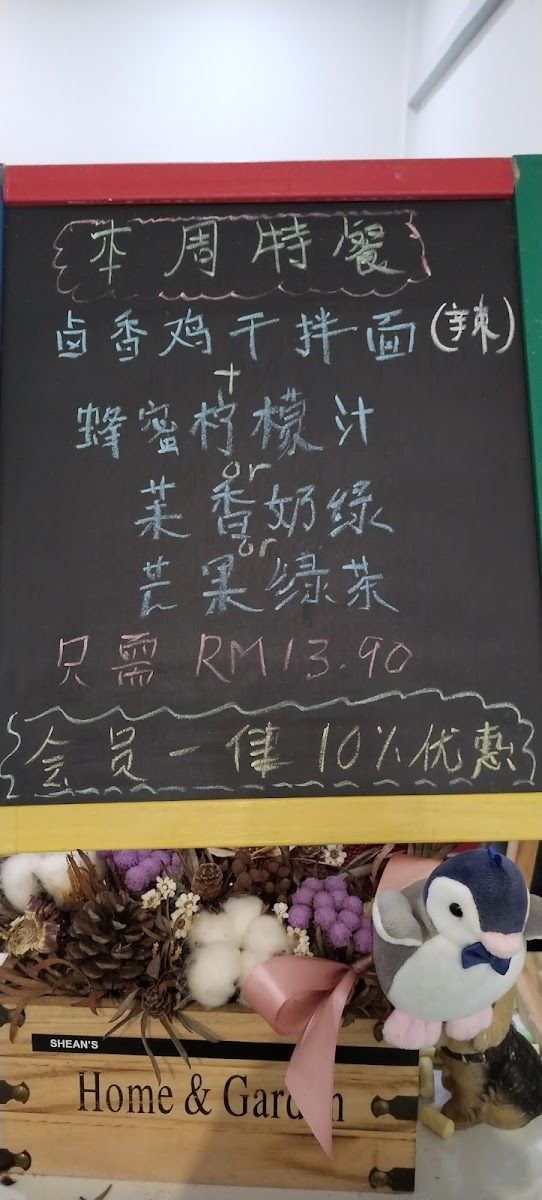 本周特餐
卤香鸡干拌面(辣)
+
蜂蜜柠檬汁
or
茉香奶绿
or
芒果绿茶
只需 RM13.90
会员一律 10% 优惠
SHEAN'S
Home & Garden